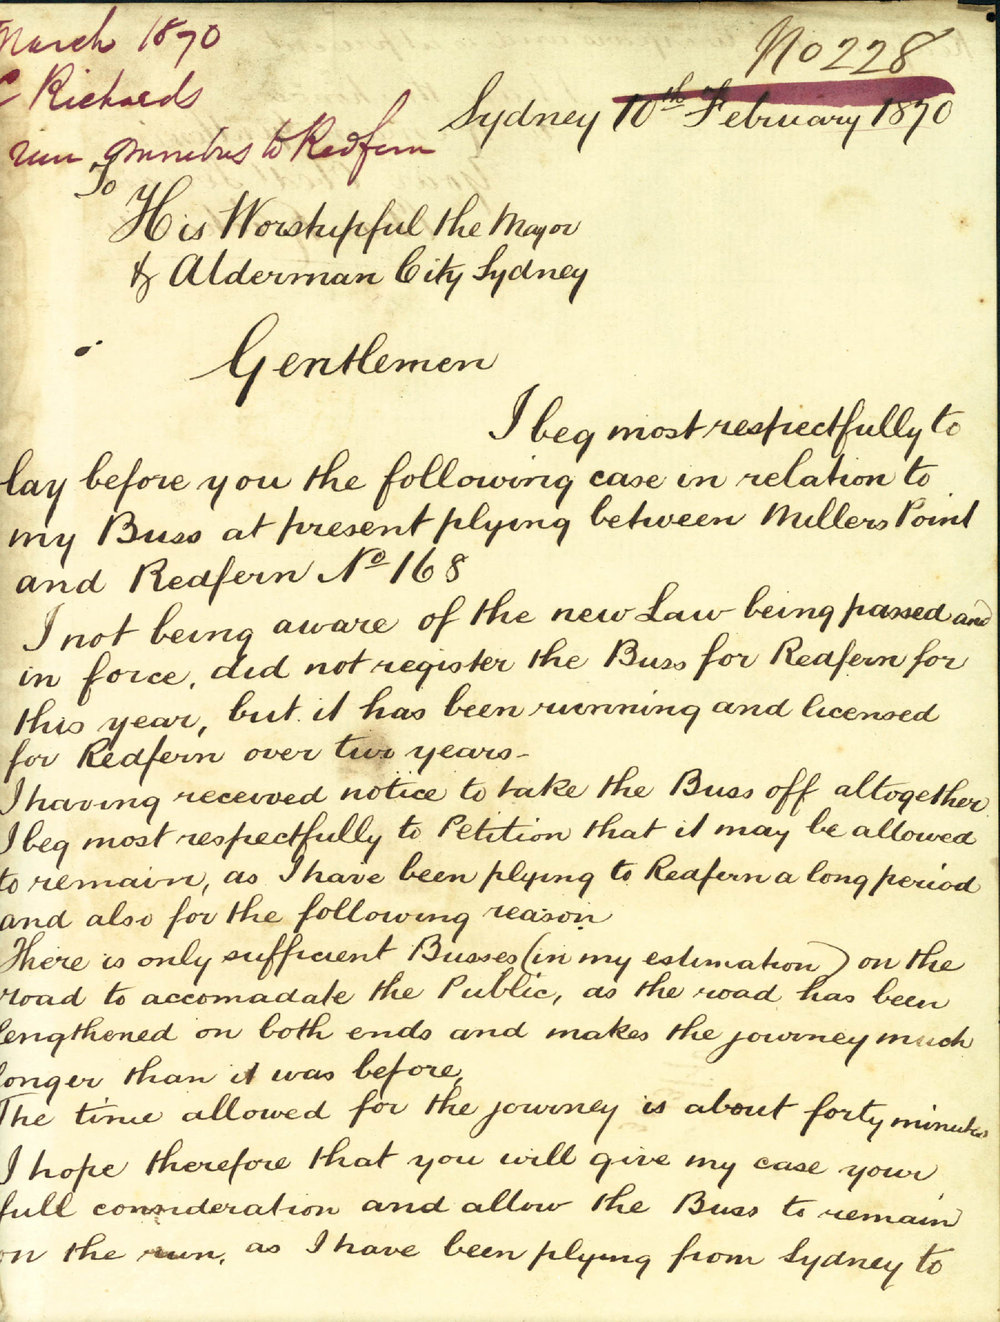 March 1870
C Richards
run Omnibus to Redfern
No 228
Sydney 10th February 1870
To
His Worshipful the Mayor
& Alderman City Sydney
Gentlemen
I beg most respectfully to
lay before you the following case in relation to
my Buss at present plying between Millers Point
and Redfern No 168
I not being aware of the new Law being passed and
in force, did not register the Buss for Redfern for
this year, but it has been running and licensed
for Redfern over two years-
I having received notice to take the Buss off altogether
I beg most respectfully to Petition that it may be allowed
to remain, as I have been plying to Redfern a long period
and also for the following reason
There is only sufficient Busses (in my estimation) on the
road to accomadate the Public, as the road has been
lengthened on both ends and makes the journey much
longer than it was before,
The time allowed for the journey is about forty minutes
I hope therefore that you will give my case your
full consideration and allow the Buss to remain
on the run, as I have been plying from Sydney to